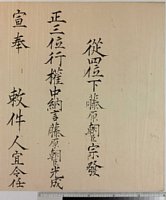 從四位下藤原朝臣宗發
正三位行權中納言藤原朝臣光成
宣奉　敕件人宜令任